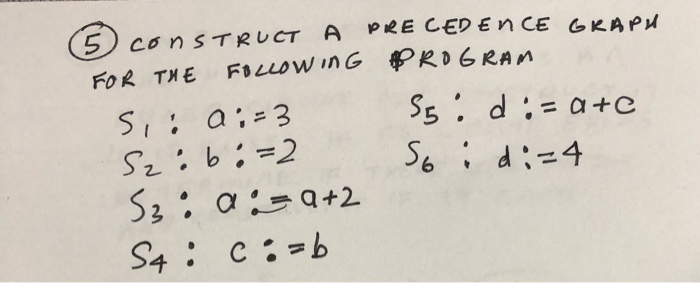 5 CONSTRUCT A PRECEDENCE GRAPH
FOR THE FOLLOWING PROGRAM
S1 : a := 3
S2 : b := 2
S3 : a := a+2
S4 : c := b
S5 : d := a+c
S6 : d := 4